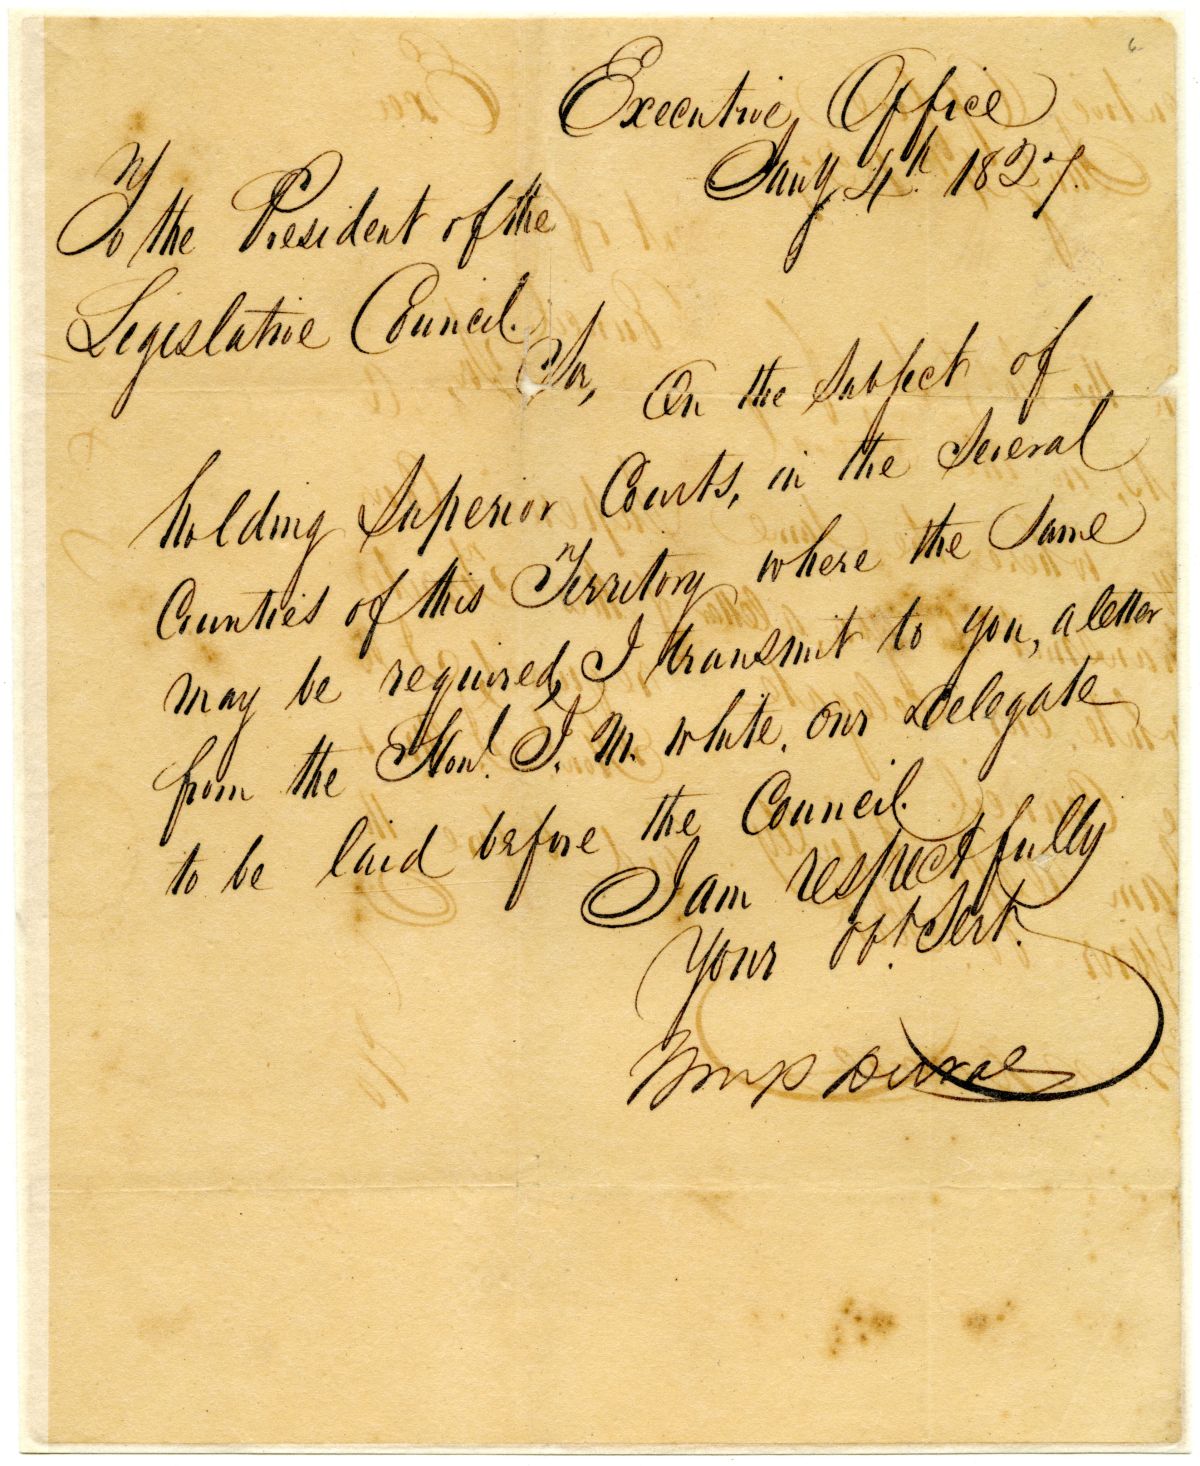 6
Executive Office
Jany 4th. 1827.
To the President of the
Legislative Council.
Sir, On the Subject of
holding Superior Courts, in the Several
Counties of this Territory where the Same
may be required, I transmit to you, a letter
from the Honl. J. M. White, our Delegate
to be laid before the Council.
I am respectfully
Your obt. Sert.
Wm P Duval